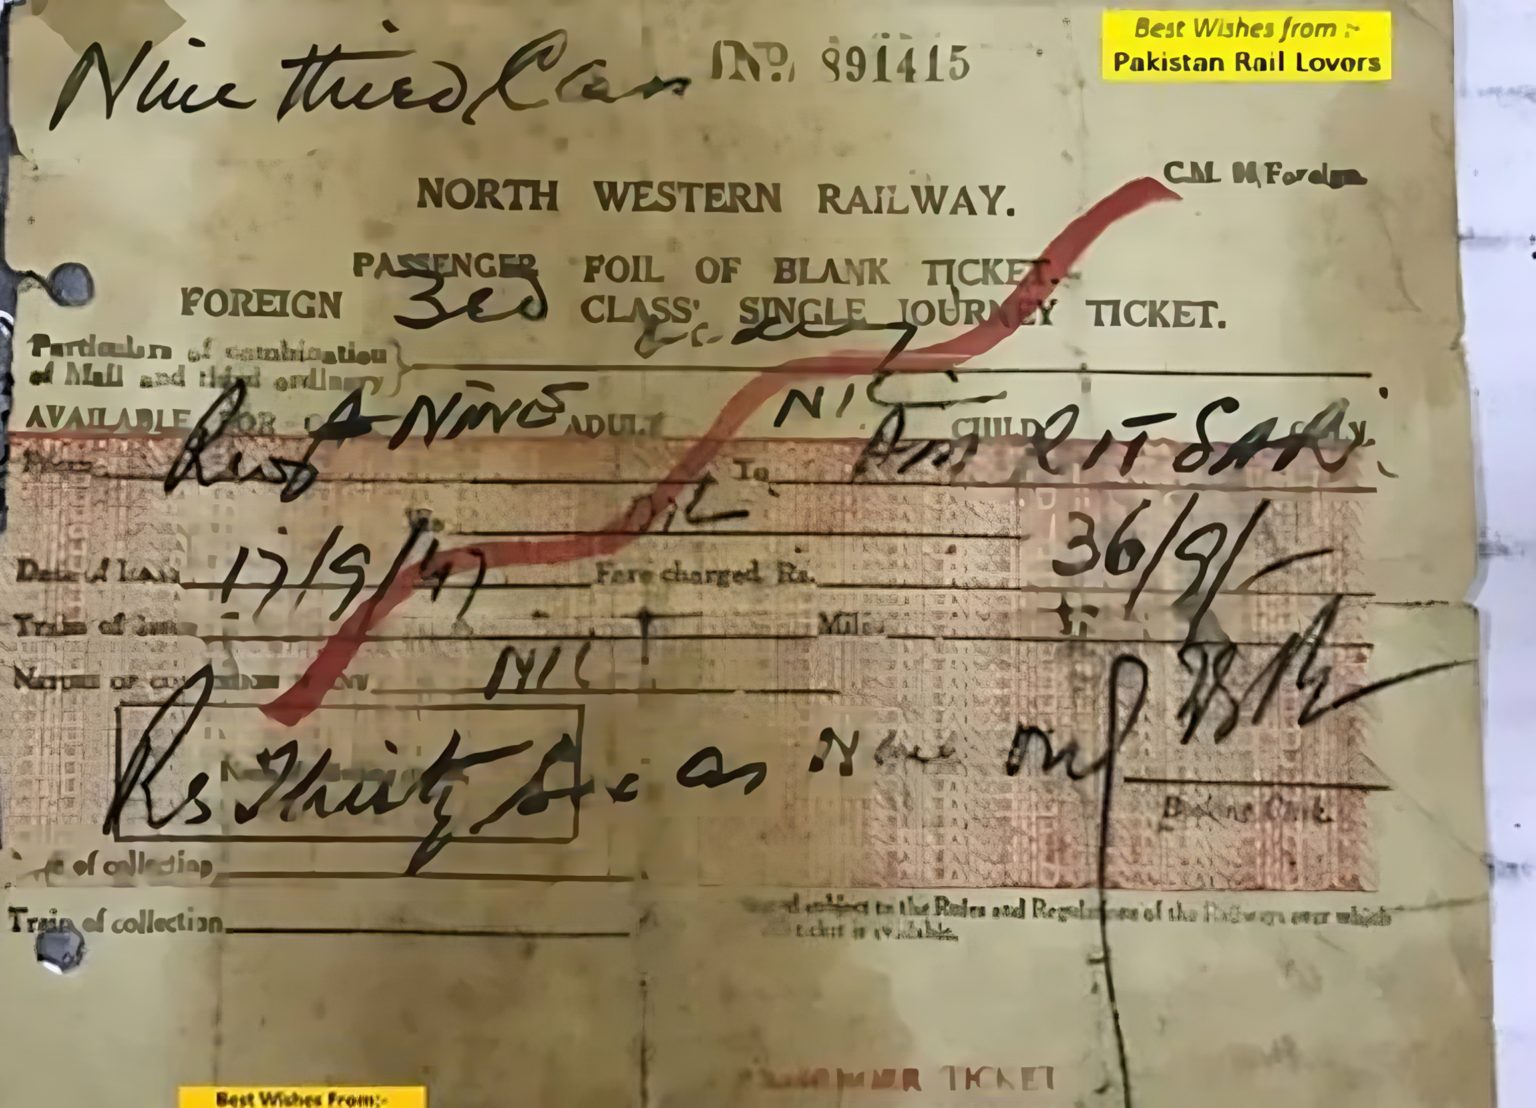 Nine third Class No. 891415
Best Wishes from :-
Pakistan Rail Lovers
C.M. M, Foreign
NORTH WESTERN RAILWAY.
PASSENGER FOIL OF BLANK TICKET.
FOREIGN 3rd CLASS' SINGLE JOURNEY TICKET.
Particulars of combination
of Mail and third ordinary
AVAILABLE FOR NINE ADULT NIL CHILD ONLY.
From To AMRITSAR
Via NIL
Date of Issue 17/9/47 Fare charged Rs. 36/9/-
Train of Issue Miles
NIL
Rs Thirty Six as Nine only
Booking Clerk.
of collection
Train of collection
Issued subject to the Rules and Regulations of the Railways over which
ticket is available.
TICKET
Best Wishes From:-